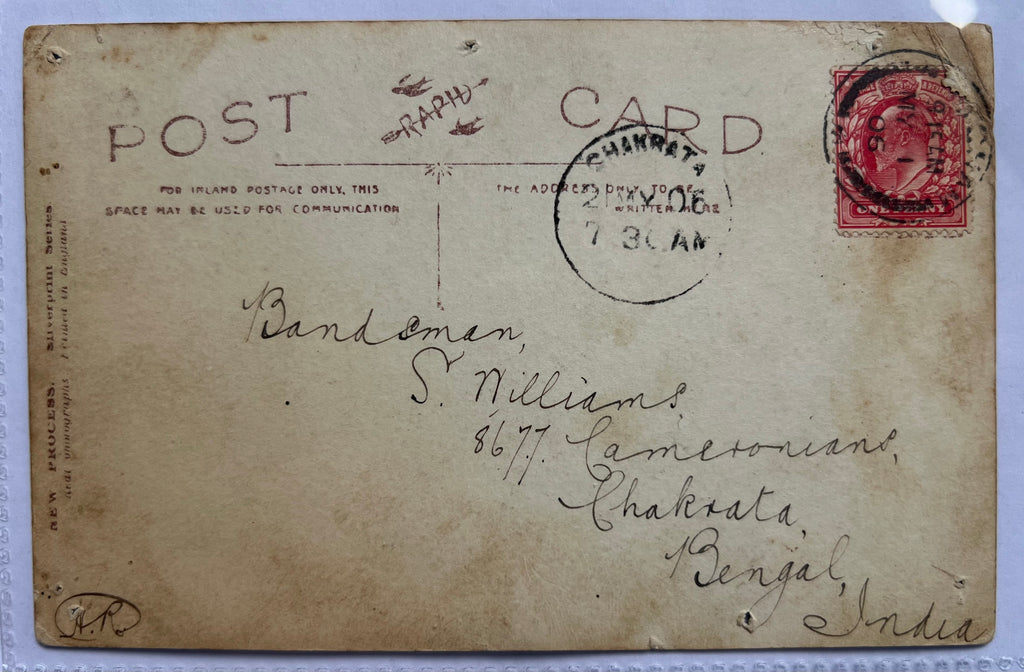 POST CARD
RAPID
FOR INLAND POSTAGE ONLY, THIS
SPACE MAY BE USED FOR COMMUNICATION
THE ADDRESS ONLY TO BE
WRITTEN HERE
CHAKRATA
21 MY 06
7 30 AM
ONE PENNY
NEW PROCESS. Silverprint Series
Real Photographs Printed in England
Bandsman,
S. Williams,
8677. Cameronians,
Chakrata,
Bengal,
India
A.R.